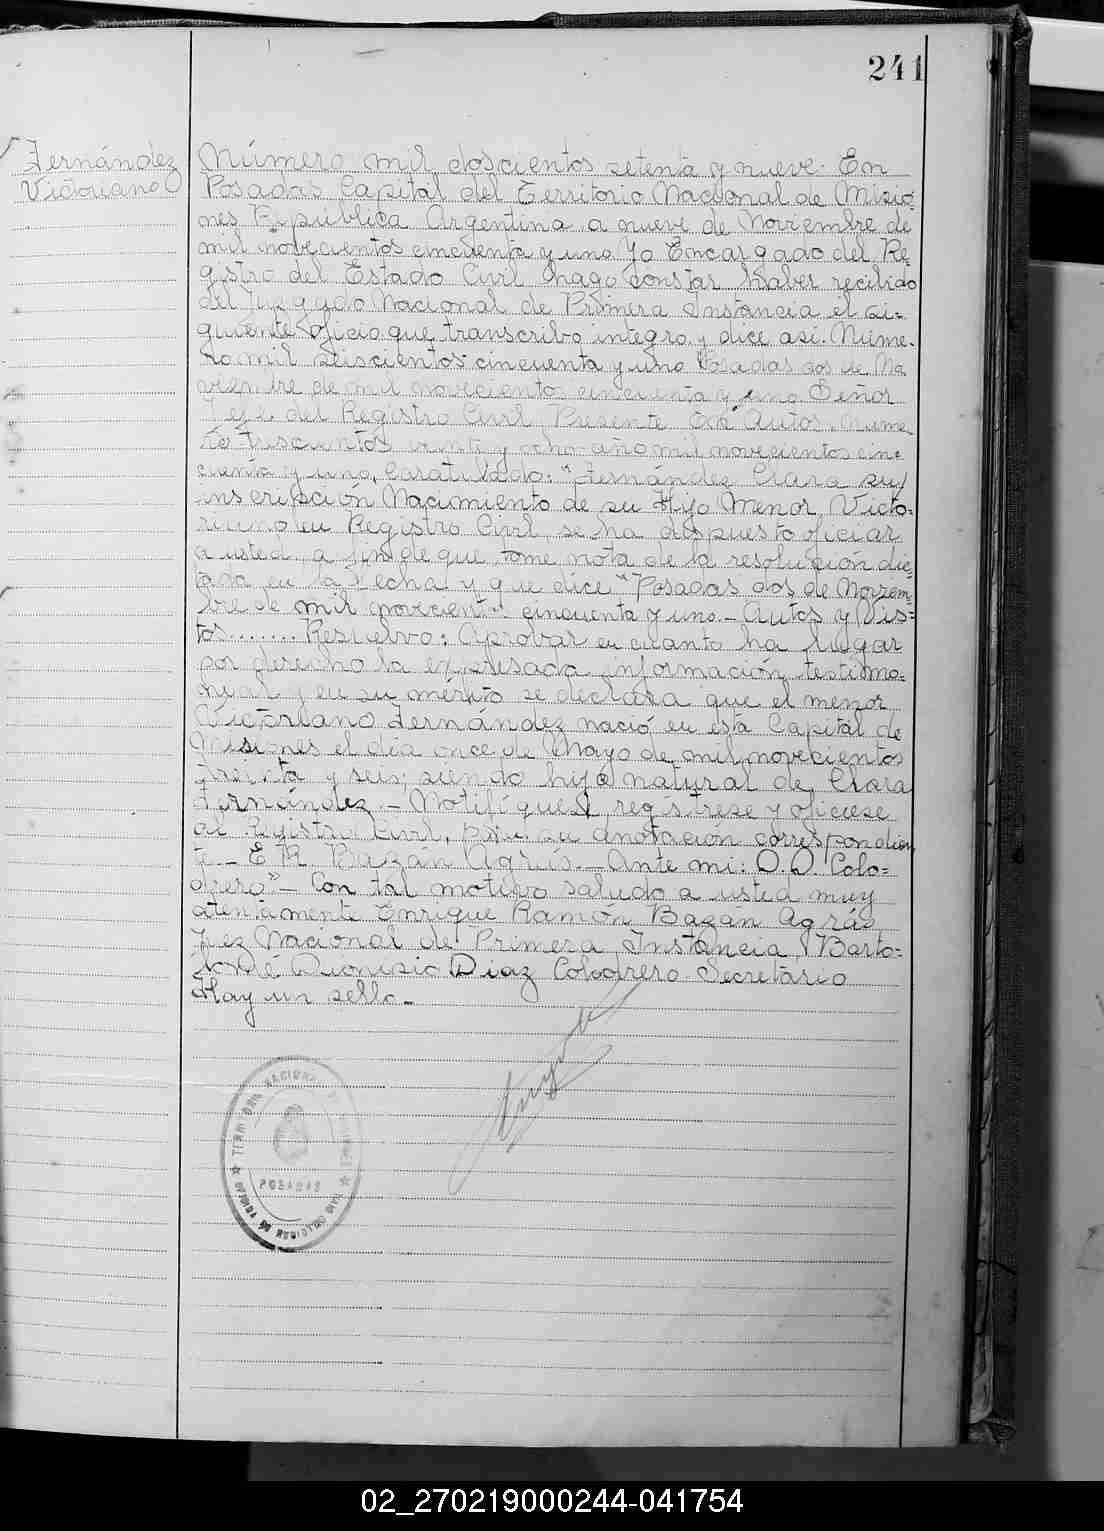 241
Fernández
Victoriano
Número mil doscientos setenta y nueve. En
Posadas, Capital del Territorio Nacional de Misio=
nes República Argentina a nueve de Noviembre de
mil novecientos cincuenta y uno Yo Encargado del Re
gistro del Estado Civil hago constar haber recibido
del Juzgado Nacional de Primera Instancia el si=
guiente oficio que transcribo integro y dice asi. Núme.
ro mil seiscientos cincuenta y uno Posadas dos de No
viembre de mil novecientos cincuenta y uno. Señor
Jefe del Registro Civil Presente En Autos. Nume.
ro trescientos veinte y ocho año mil novecientos cin=
cuenta y uno, Caratulado: "Fernández Clara su/
inscripcion Nacimiento de su Hijo Menor Victo=
riano en Registro Civil se ha dispuesto oficiar
a usted, a fin de que tome nota de la resolución dic=
tada en la fecha y que dice "Posadas dos de Noviem=
bre de mil novecientos cincuenta y uno.- Autos y Vis=
tos....... Resuelvo: Aprobar en cuanto ha lugar
por derecho la expresada información testimo=
nial y en su merito se declara que el menor
Victoriano Fernández nació en esta Capital de
Misiones el dia once de Mayo de mil novecientos
treinta y seis, siendo hijo natural de Clara
Fernández.- Notifíquese, registrese y oficiese
al Registro Civil, para su anotación correspondien
te.- E R Bazán Agrás.- Ante mi: D. D. Colo=
drero"- Con tal motivo saludo a usted muy
atentamente Enrique Ramón Bazan Agrás
Juez Nacional de Primera Instancia, Barto=
lomé Dionisio Diaz Colodrero Secretario
Hay un sello.-
POSADAS
02_270219000244-041754